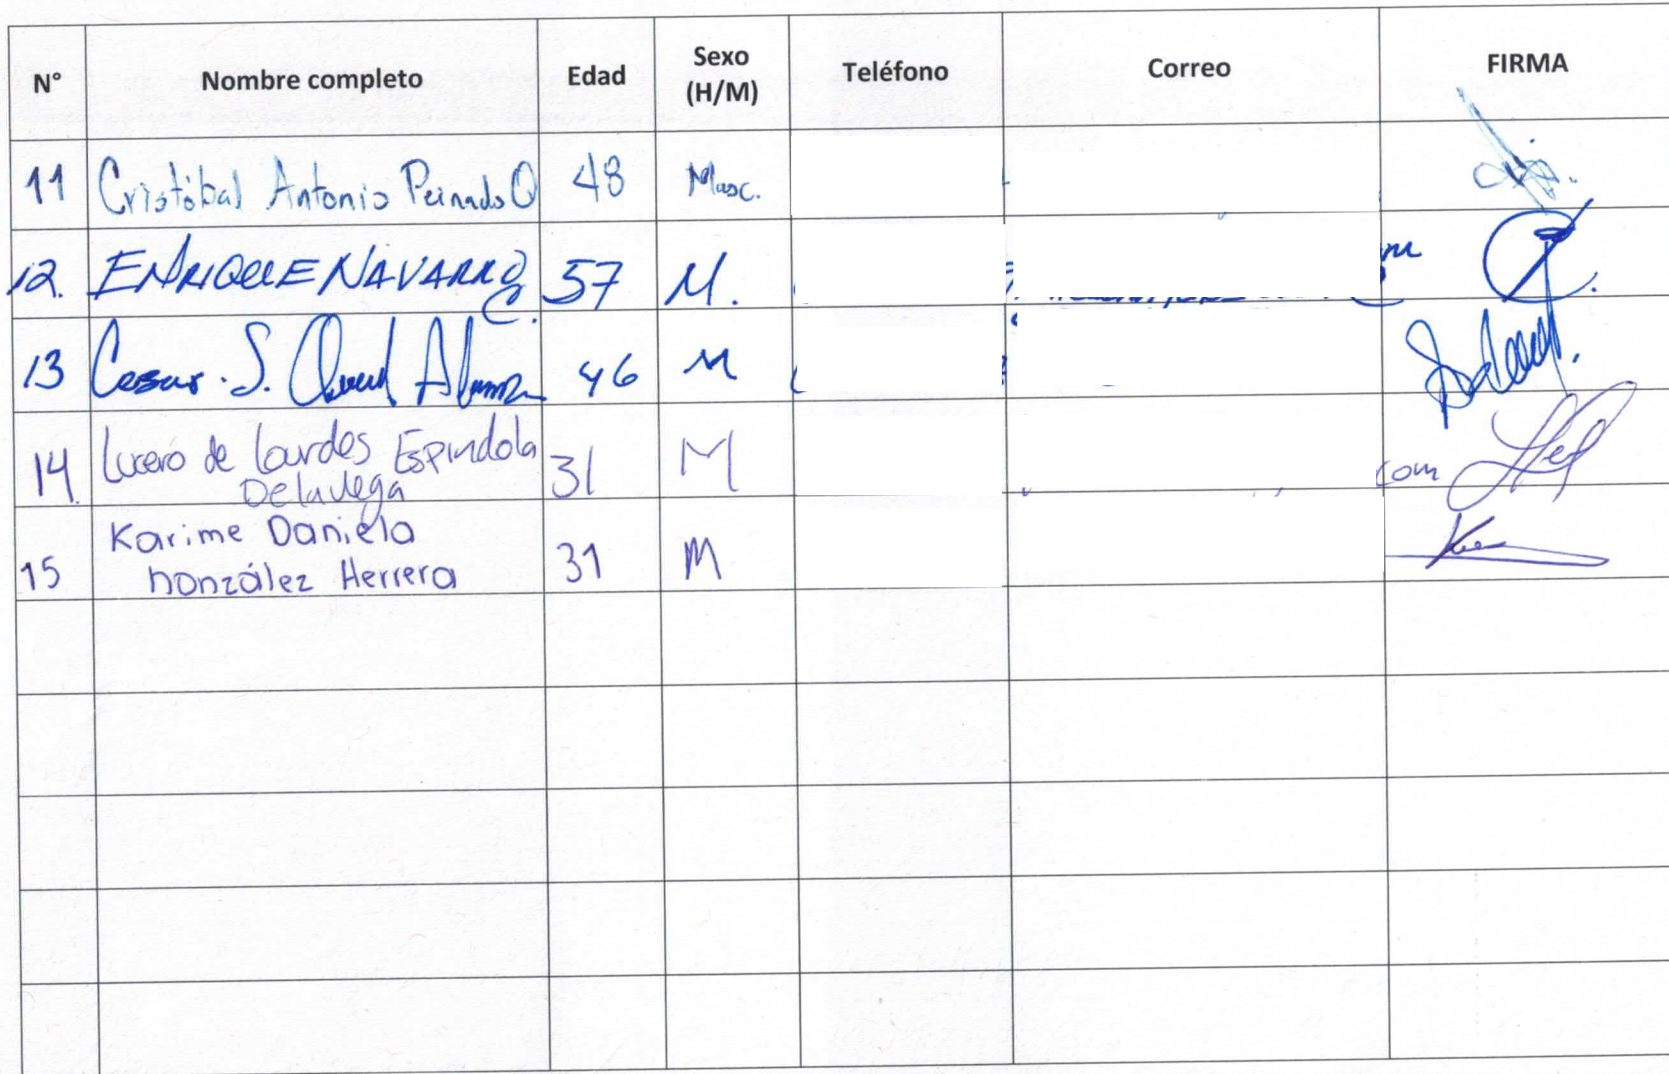 N° Nombre completo Edad Sexo (H/M) Teléfono Correo FIRMA
11 Cristóbal Antonio Peinado Q 48 Masc.
12. ENRIQUE NAVARRO C. 57 M.
13 Cesar. S. 46 M
14. Lucero de Lourdes Espindola 31 M com
Delavega
Karime Daniela
15 González Herrera 31 M